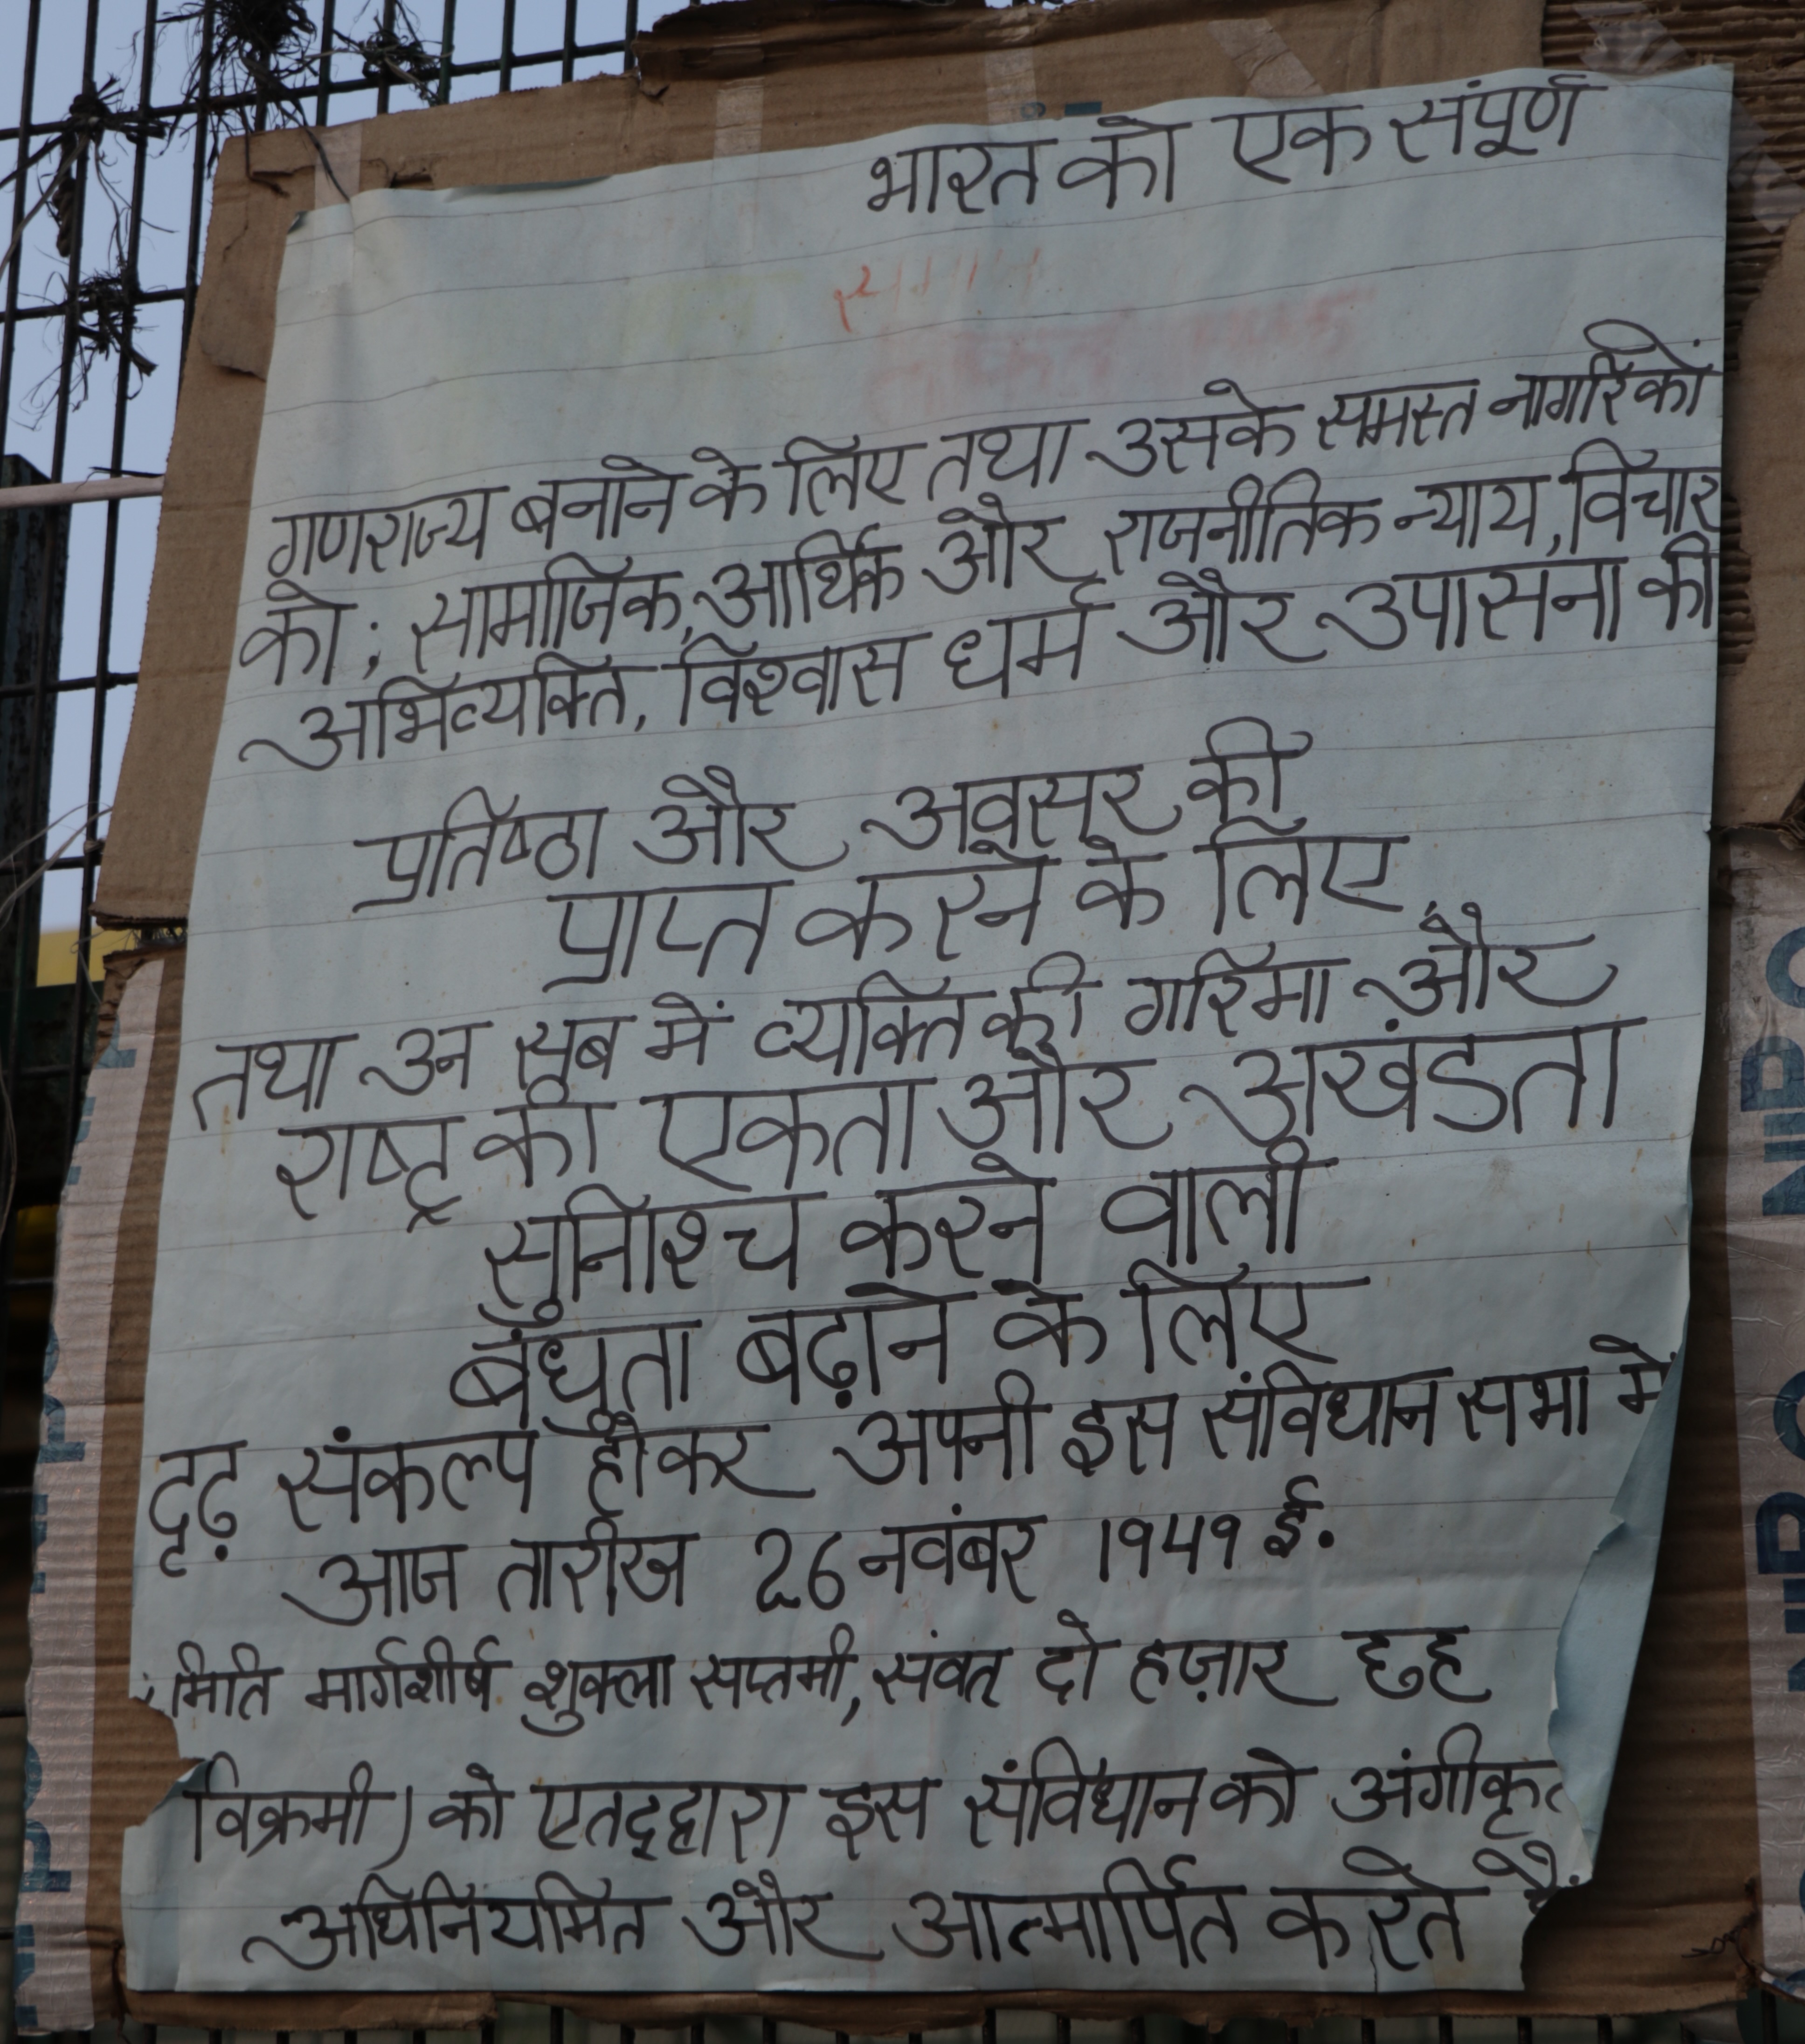 भारत को एक संपूर्ण
गणराज्य बनाने के लिए तथा उसके समस्त नागरिकों
को; सामाजिक, आर्थिक और राजनीतिक न्याय, विचार
अभिव्यक्ति, विश्वास धर्म और उपासना की
प्रतिष्ठा और अवसर की
प्राप्त करने के लिए
तथा उन सब में व्यक्ति की गरिमा और
राष्ट्र की एकता और अखंडता
सुनिश्च करने वाली
बंधुता बढ़ाने के लिए
दृढ़ संकल्प होकर अपनी इस संविधान सभा में
आज तारीख 26 नवंबर १९४९ ई.
मिति मार्गशीर्ष शुक्ला सप्तमी, संवत् दो हज़ार छह
विक्रमी) को एतद्द्वारा इस संविधान को अंगीकृत
अधिनियमित और आत्मार्पित करते हैं